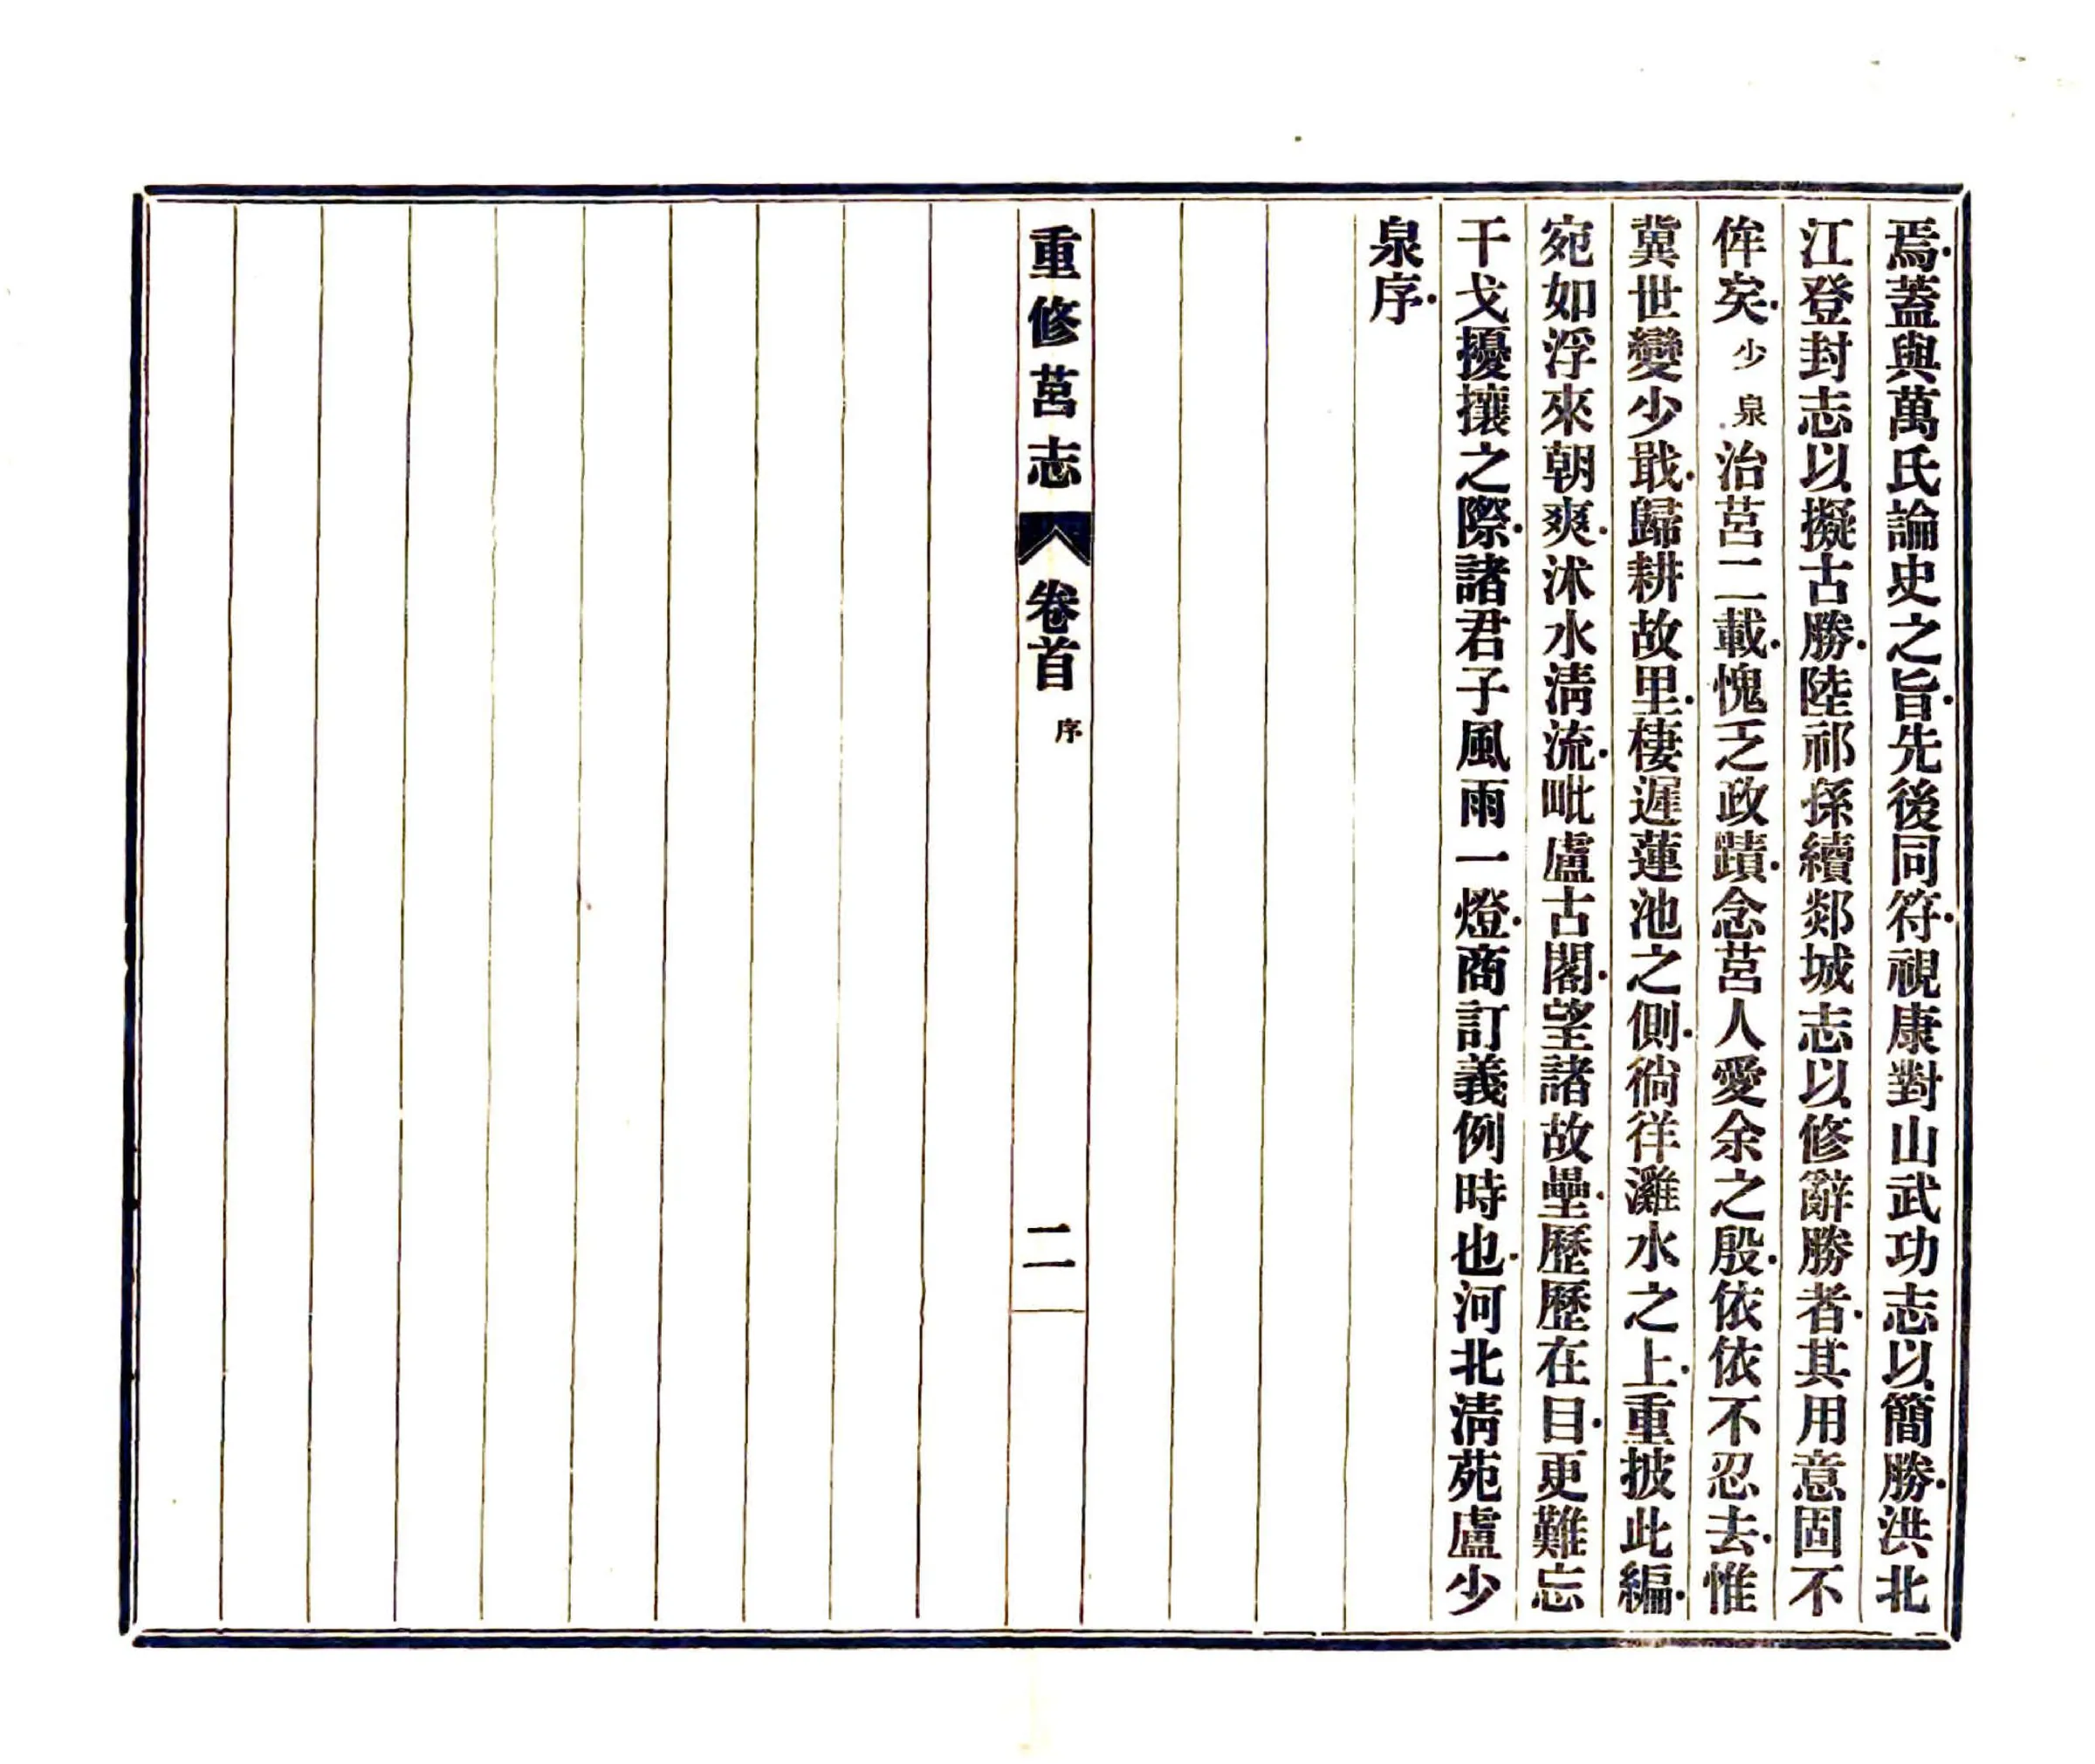 焉．蓋與萬氏論史之旨．先後同符．視康對山武功志以簡勝．洪北
江登封志以擬古勝．陸祁孫續郯城志以修辭勝者．其用意固不
侔矣．少泉治莒二載．愧乏政蹟．念莒人愛余之殷．依依不忍去．惟
冀世變少戢．歸耕故里．棲遲蓮池之側．徜徉灉水之上．重披此編．
宛如浮來朝爽．沭水淸流．毗盧古閣．望諸故壘．歷歷在目．更難忘
干戈擾攘之際．諸君子風雨一燈．商訂義例時也．河北淸苑盧少
泉序．
重修莒志 卷首 序 二